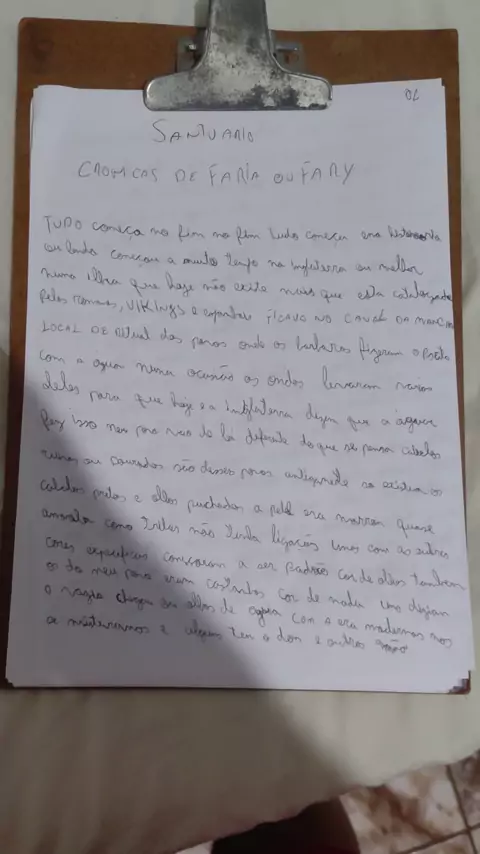 01
SANTUARIO
CRONICAS DE FARIA OU FARY
TUDO começa no fim no fim tudo começa era
ou lenda começou a muito tempo na inglaterra ou melhor
numa ilha que hoje não exite mais que esta catalogada
pelos romanos, VIKINGS e FICAVA NO CANAL DA MANCHA
LOCAL DE RITUAL dos povos onde os barbaros fizeram o Pacto
com a agua numa ocasião as ondas levaram varios
deles para que hoje e a inglaterra dizem que a agua
fez isso meu povo veio de la diferente do que se pensa cabelos
ruivos ou dourados são desses povos antigamente so existia os
cabelos pretos e olhos puchados a pele era marrom quase
amarelos como tribos não tenho ligações unos com as outros
cores especificas começaram a ser padrão cor de olhos tambem
os do meu povo eram castanhos cor de madeira uns dizem
o olhos de agua com a era moderna nos
se misturamos e alguns tem o dom e outros não